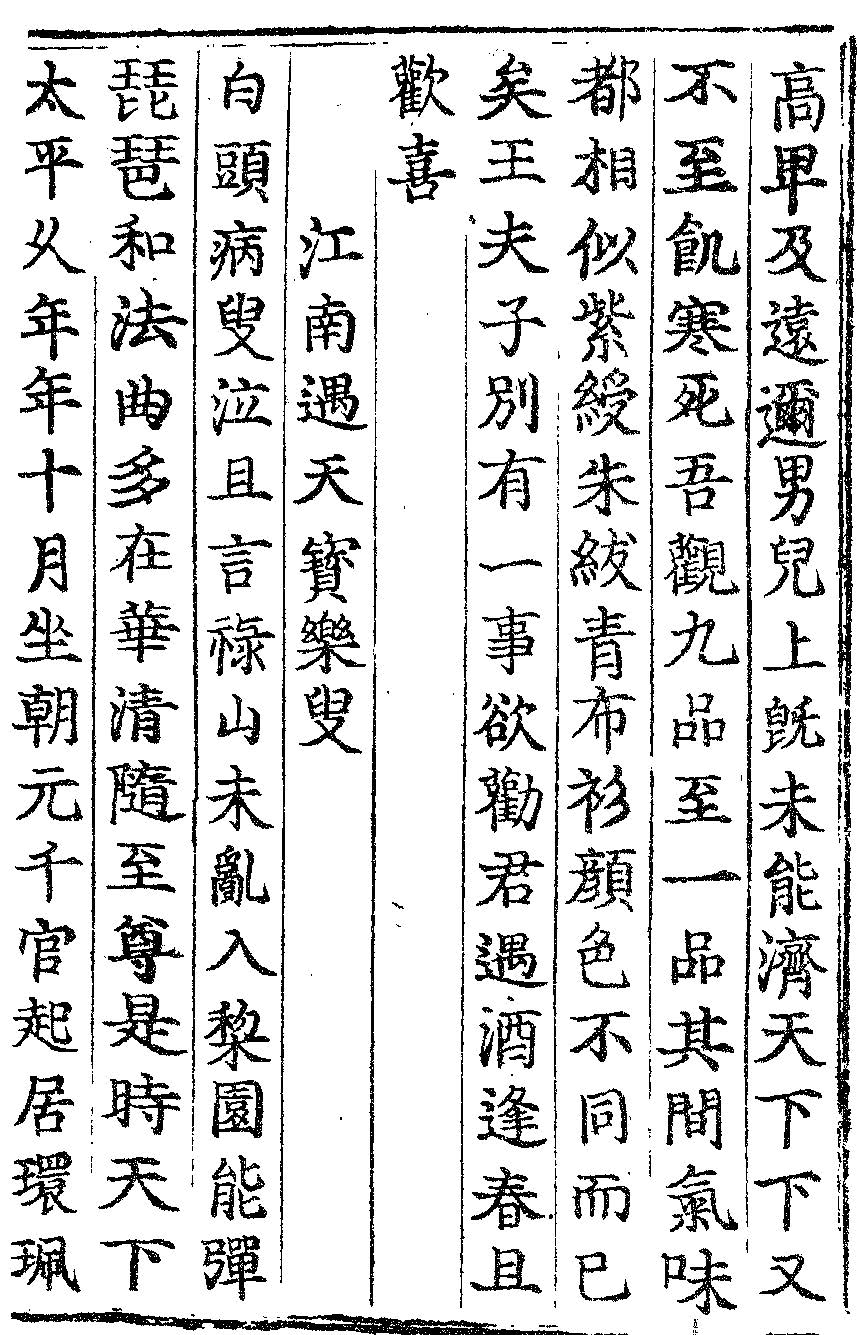 高卑及遠邇男兒上旣未能濟天下下又
不至飢寒死吾觀九品至一品其間氣味
都相似紫綬朱紱青布衫顔色不同而已
矣王夫子別有一事欲勸君遇酒逢春且
歡喜
江南遇天寶樂叟
白頭病叟泣且言祿山未亂入棃園能彈
琵琶和法曲多在華清隨至尊是時天下
太平乆年年十月坐朝元千官起居環珮